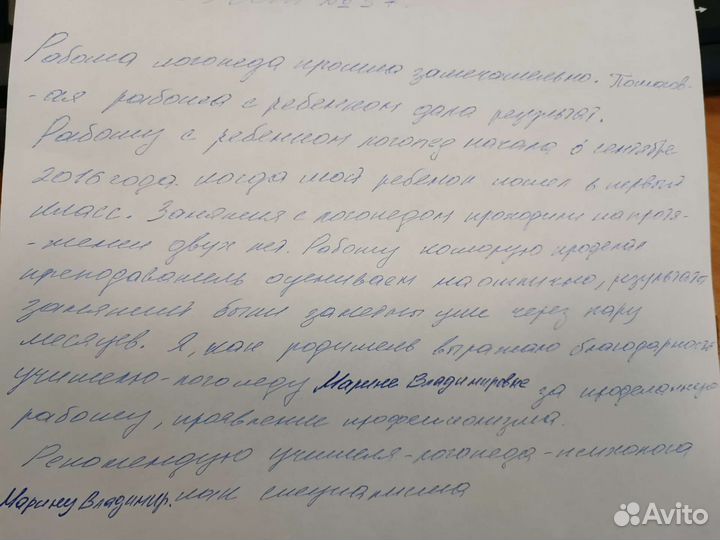 № 37.
Работа логопеда прошла замечательно. Поталов-
-ая работа с ребенком дала результат.
Работу с ребенком логопед начала в сентябре
2016 года. когда мой ребенок пошел в первый
класс. Занятия с логопедом проходили на протя-
-жении двух лет. Работу которую проделал
преподаватель оцениваем на отлично, результаты
занятий были заметны уже через пару
месяцев. Я, как родитель выражаю благодарность
учителю-логопеду Марине Владимировне за проделанную
работу, проявление профессионализма.
Рекомендую учителя-логопеда-психолога
Марину Владимир. как специалиста
Avito